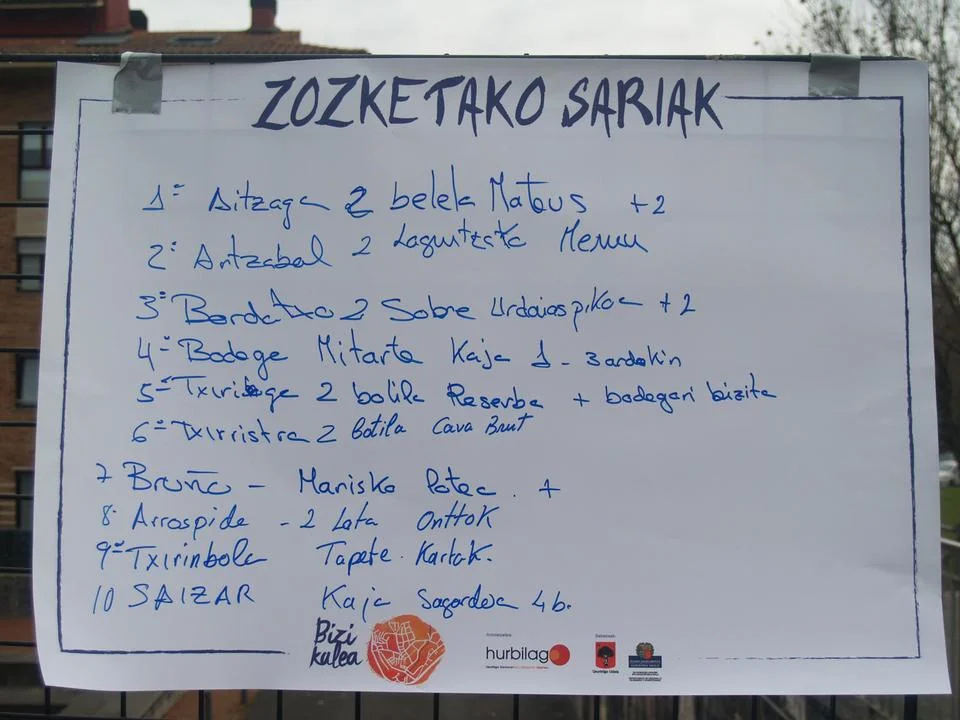 ZOZKETAKO SARIAK
1º Aitzaga 2 botela Mateus +2
2º Artzabal 2 Laguntzako Menu
3º Bordatxo 2 Sobre Urdaiazpikoa +2
4º Bodega Mitarte Kaja 1 - 3 ardokin
5º 2 botila Reserba + bodegari bizita
6º Txirristra 2 Botila Cava Brut
7 Bruño - Marisko Potea. +
8. Arrospide - 2 Lata Onttok
9º Txirinbola Tapete. Kartak.
10 SAIZAR Kaja Sagardoa 4 b.
Bizi kalea
hurbilago